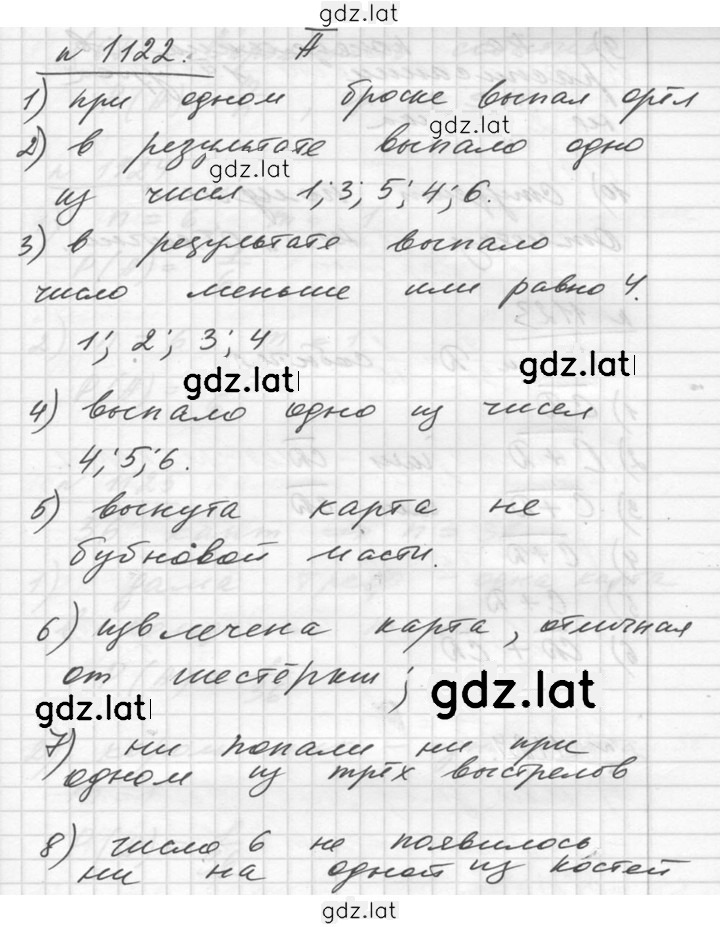 gdz.lat
n 1122. Ā
1) при одном броске выпал орёл
gdz.lat
2) в результате выпало одно
gdz.lat
из чисел 1; 3; 5; 4; 6.
3) в результате выпало
число меньше или равно 4.
1; 2; 3; 4
gdz.lat
gdz.lat
4) выпало одно из чисел
4; 5; 6.
5) вынута карта не
бубновой масти.
6) извлечена карта, отличная
от шестёрки;
gdz.lat
gdz.lat
7) ни попали ни при
одном из трёх выстрелов
8) число 6 не появилось
ни на одной из костей
gdz.lat